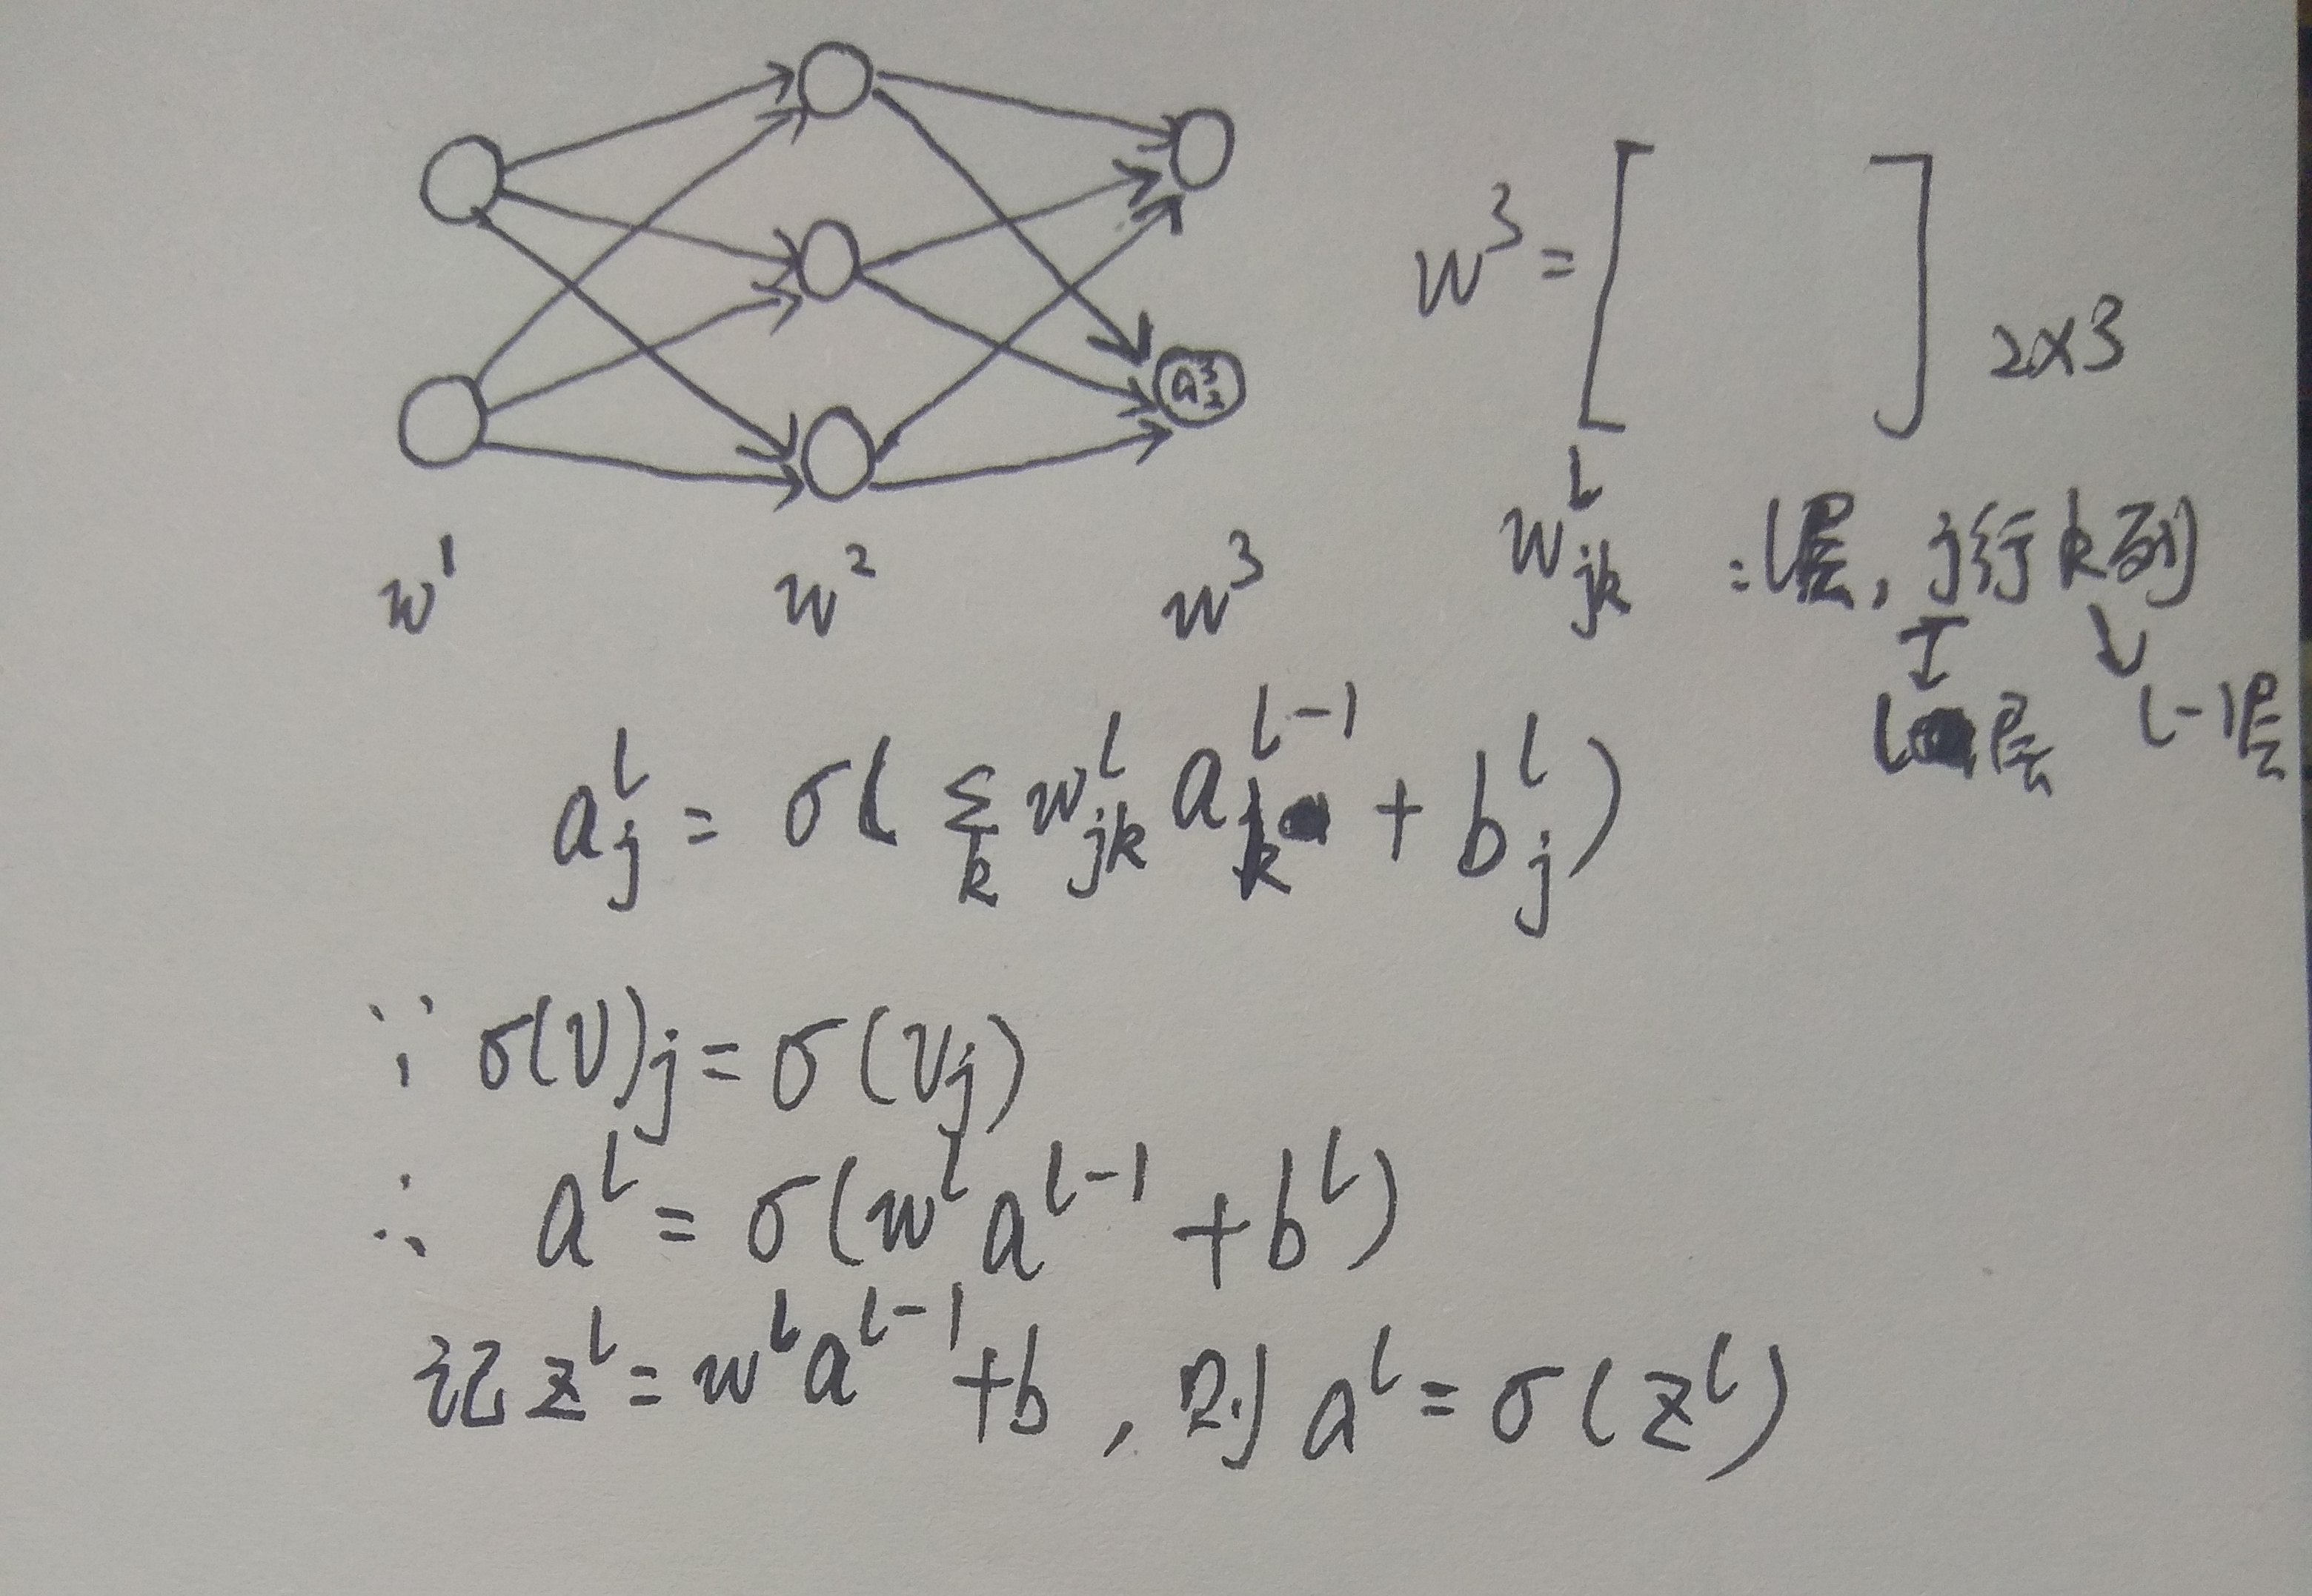 a₂³
w³ = [ ]₂ₓ₃
w¹ w² w³
wˡⱼₖ : l层, j行k列
l层 l-1层
aˡⱼ = σ( Σₖ wˡⱼₖ aₖˡ⁻¹ + bˡⱼ )
∵ σ(v)ⱼ = σ(vⱼ)
∴ aˡ = σ(wˡaˡ⁻¹ + bˡ)
记 zˡ = wˡaˡ⁻¹ + b , 则 aˡ = σ(zˡ)